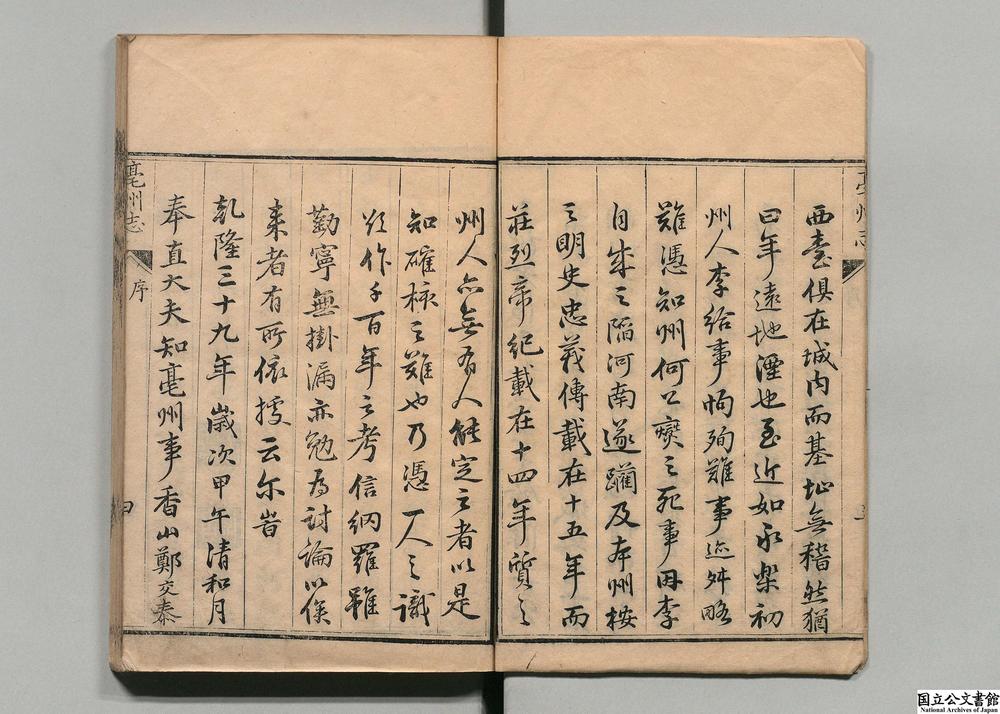 西臺俱在城内而基址無稽然猶
曰年遠地湮也至近如永樂初
州人李給事恂殉難事迹舛略
難憑知州何公燮之死事因李
自成之陷河南遂躪及本州按
之明史忠義傳載在十五年而
莊烈帝紀載在十四年質之
州人亦無有人能定之者以是
知確核之難也乃憑一人之識
欲作千百年之考信網羅雖
勤寧無掛漏亦勉為討論以俟
来者有所依據云尔旹
乾隆三十九年歲次甲午清和月
奉直大夫知亳州事香山鄭交泰
亳州志
序
四
亳州志
国立公文書館
National Archives of Japan